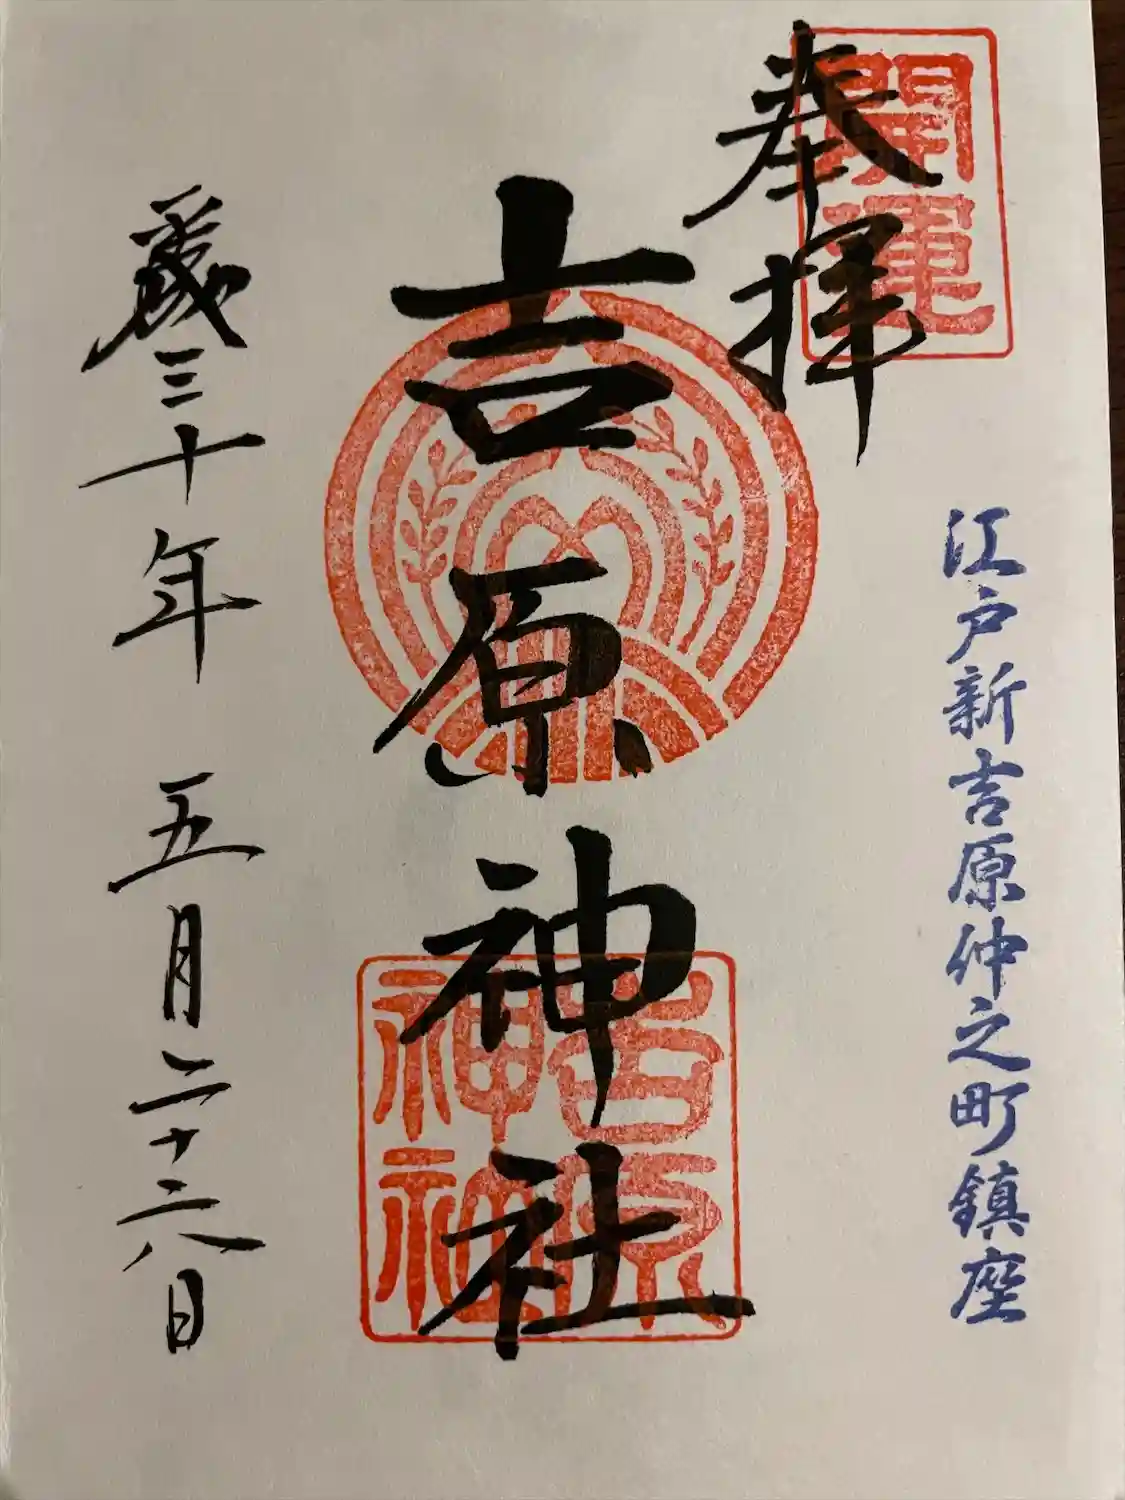 開運
奉拝
江戸新吉原仲之町鎮座
吉原神社
吉原
神社
平成三十年 五月二十六日